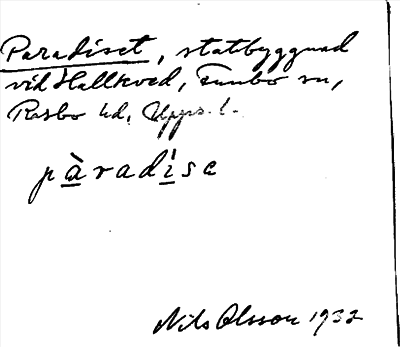 Paradiset, statbyggnad
vid Hallkved, Funbo sn,
Rasbo hd, Upps. l.
pàradíse
Nils Olsson 1932